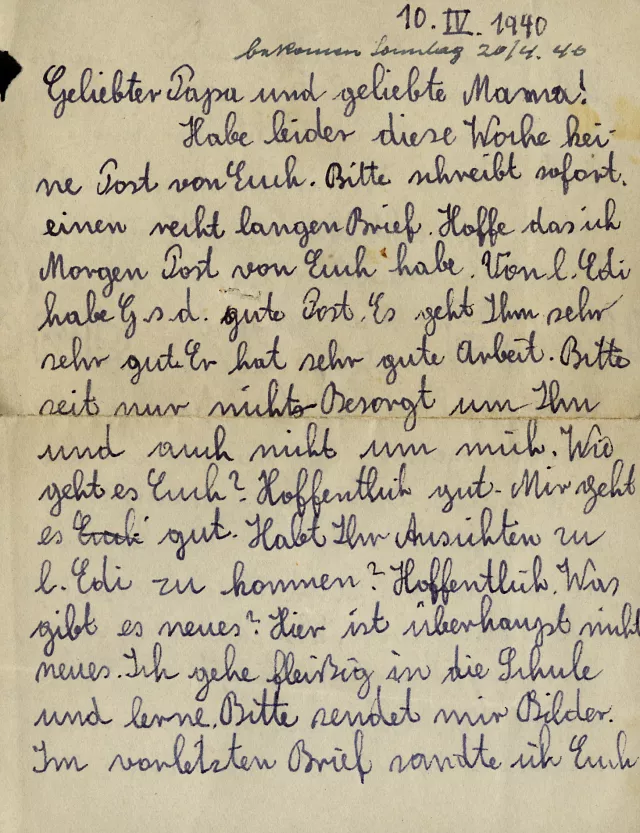 10. IV. 1940
bekomen Sonntag 20/4. 40
Geliebter Papa und geliebte Mama!
Habe leider diese Woche kei-
ne Post von Euch. Bitte schreibt sofort.
einen recht langen Brief. Hoffe das ich
Morgen Post von Euch habe. Von l. Edi
habe G. s. d. gute Post. Es geht Ihm sehr
sehr gut. Er hat sehr gute Arbeit. Bitte
seit nur nichts Besorgt um Ihm
und auch nicht um mich. Wie
geht es Euch? Hoffentlich gut. Mir geht
es Euch gut. Habt Ihr Aussichten zu
l. Edi zu kommen? Hoffentlich. Was
gibt es neues? Hier ist überhaupt nicht
neues. Ich gehe fleißig in die Schule
und lerne. Bitte sendet mir Bilder.
Im vorletzten Brief sandte ich Euch